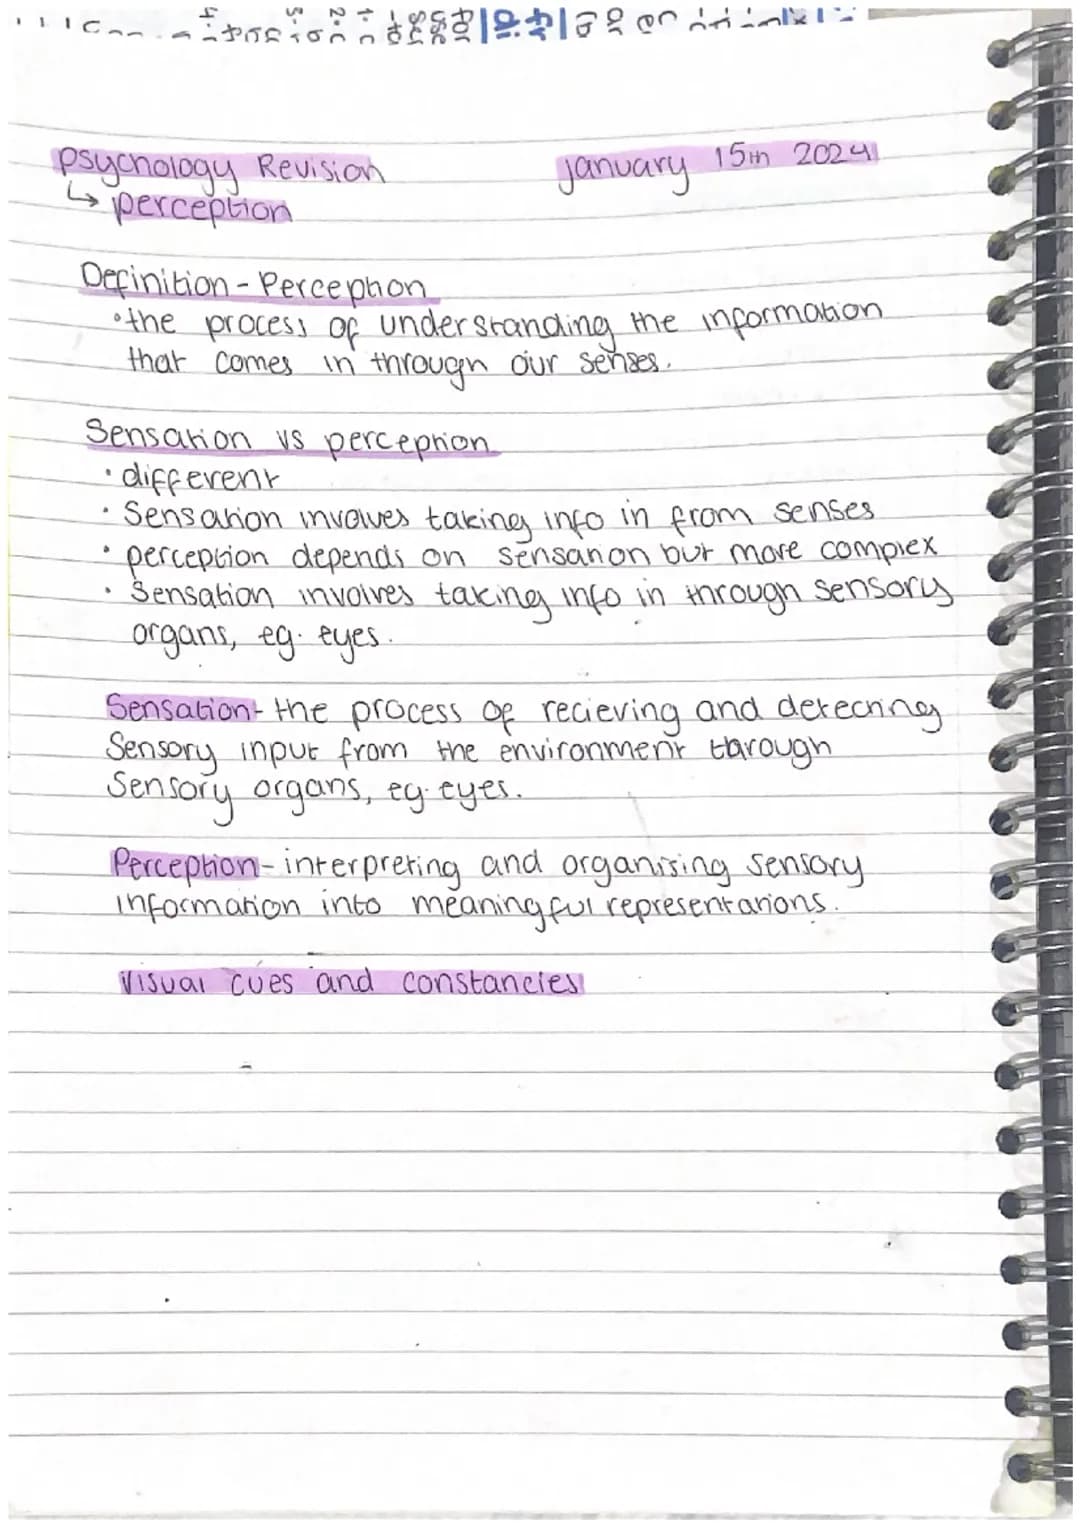 psychology Revision january 15th 2024
↳ perception
Definition - Perception
• the process of understanding the information
that comes in through our senses.
Sensation vs perception
• different
• Sensation involves taking info in from senses
• perception depends on sensation but more complex
• Sensation involves taking info in through sensory
organs, eg. eyes.
Sensation - the process of recieving and detecting
Sensory input from the environment through
Sensory organs, eg. eyes.
Perception - interpreting and organising sensory
information into meaningful representations.
Visual cues and constancies